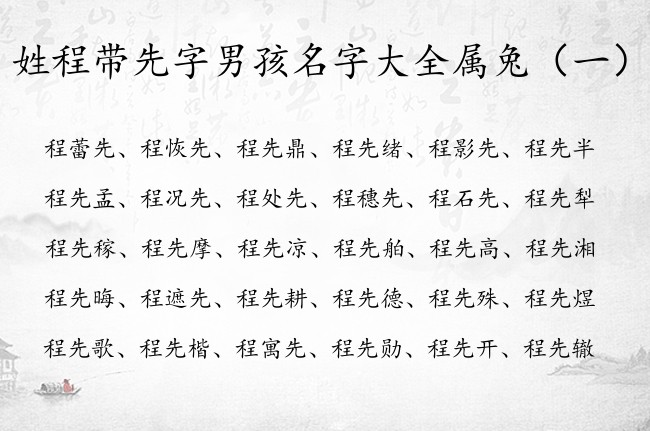 姓程带先字男孩名字大全属兔（一）
程蕾先、程恢先、程先鼎、程先绪、程影先、程先半
程先孟、程况先、程处先、程穗先、程石先、程先犁
程先稼、程先摩、程先凉、程先舶、程先高、程先湘
程先晦、程遮先、程先耕、程先德、程先殊、程先煜
程先歌、程先楷、程寓先、程先勋、程先开、程先辙